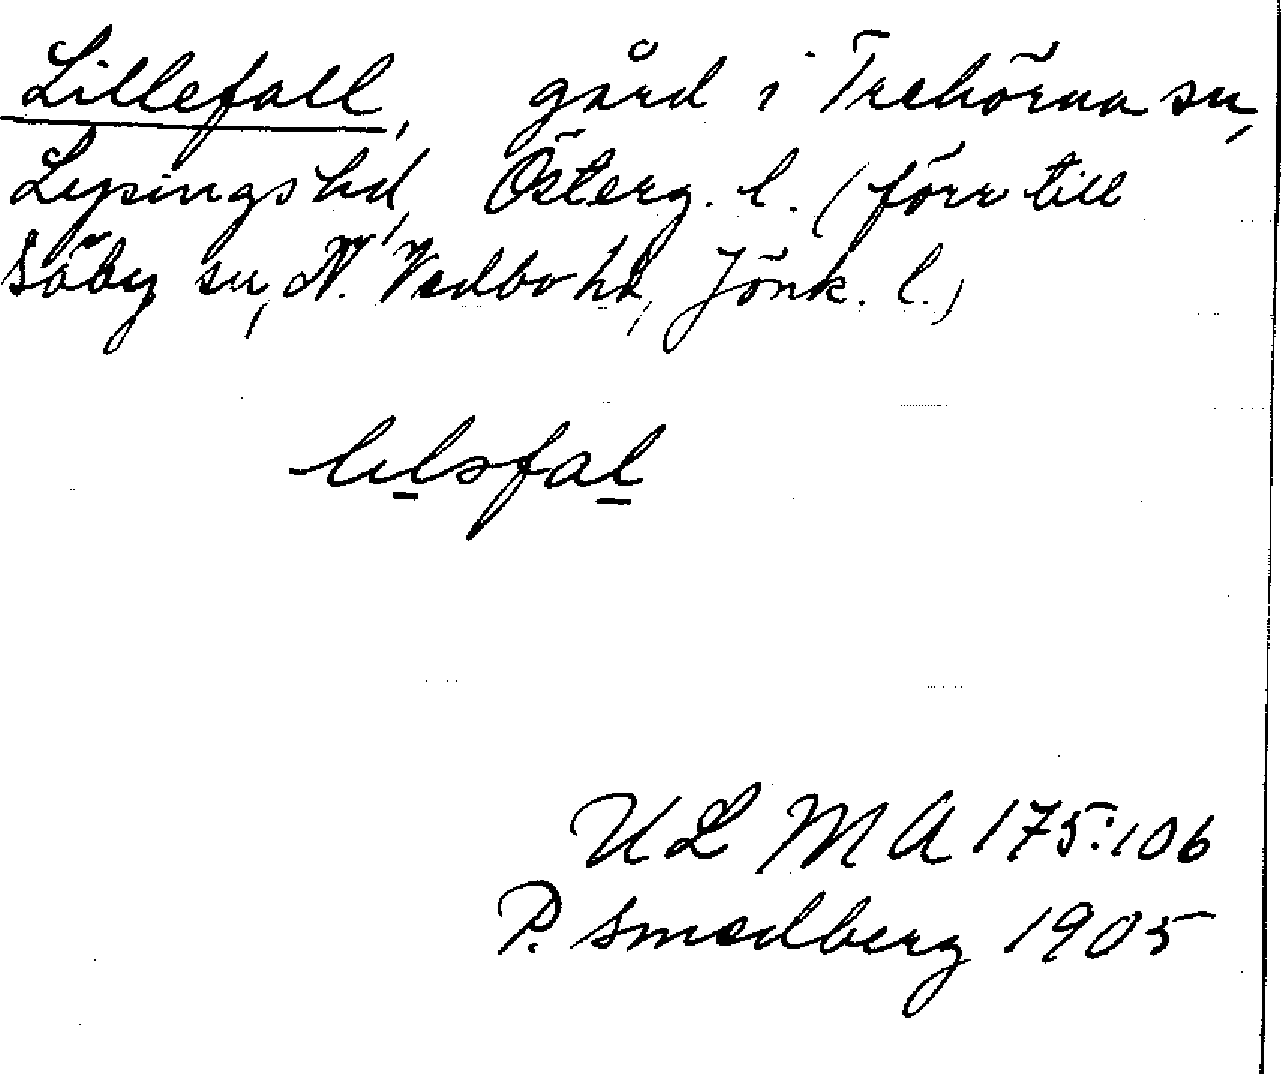 Lillefall, gård i Trehörna sn,
Lysingshd, Österg. l. (förr till
Säby sn, N. Vedbo hd, Jönk. l.)
lılsfal
ULMA 175:106
P. Smedberg 1905